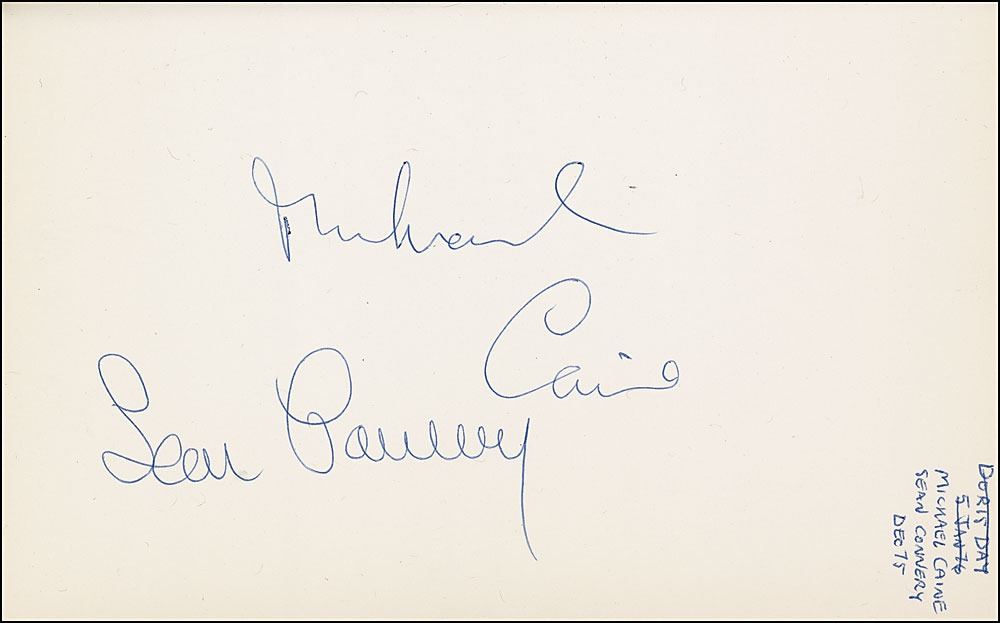 Michael
Caine
Sean Connery
DORIS DAY
5 JAN 76
MICHAEL CAINE
SEAN CONNERY
DEC 75